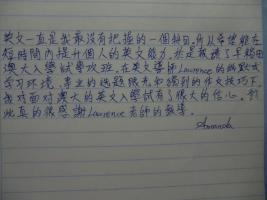 英文一直是我最沒有把握的一個科目,所以希望能在
短時間內提升個人的英文能力,於是報讀了
澳大入學試專攻班。在英文導師Lawrence的幽默式
學習環境、專業的選題眼光和獨到的作文技巧下,
我對面對澳大的英文入學試有了很大的信心。對
此真的很感謝Lawrence老師的教導。
Amanda